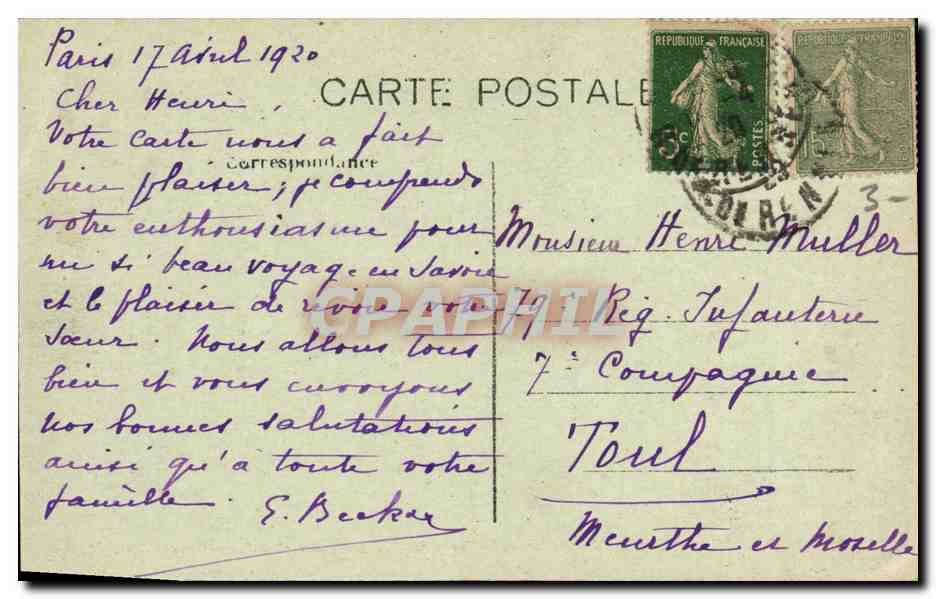 Paris 17 avril 1920
CARTE POSTALE
Cher Henri,
Votre carte nous a fait
Correspondance
bien plaisir; je comprends
votre enthousiasme pour
un si beau voyage en Savoie
et le plaisir de revoir votre
sœur. Nous allons tous
bien et vous envoyons
nos bonnes salutations
ainsi qu'à toute votre
famille.
E. Becker
REPUBLIQUE FRANÇAISE
5c
POSTES
REPUBLIQUE FRANÇAISE
15c
3-
Monsieur Henri Muller
79e Rég. Infanterie
7e Compagnie
Toul
Meurthe et Moselle
CPAPHIL